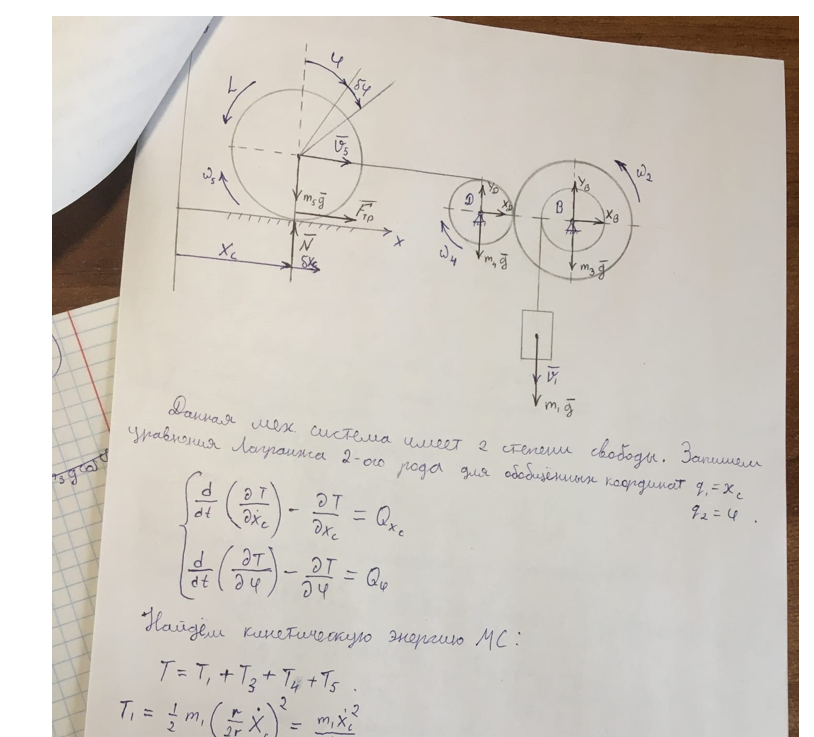 φ
δφ
L
V̅₅
ω₅
m₅g̅
F̅тр
N̅
x
X_c
δx_c
D
Y_D
X_D
ω₄
m₄g̅
B
Y_B
X_B
ω₂
m₃g̅
V̅₁
m₁g̅
Данная мех система имеет 2 степени свободы. Запишем
уравнения Лагранжа 2-ого рода для обобщённых координат q₁ = x_c
q₂ = φ.
d/dt (∂T/∂ẋ_c) − ∂T/∂x_c = Q_{x_c}
d/dt (∂T/∂φ) − ∂T/∂φ = Q_φ
Найдём кинетическую энергию МС:
T = T₁ + T₃ + T₄ + T₅.
T₁ = 1/2 m₁ (r/2r Ẋ_c)² = m₁ẋ_c²